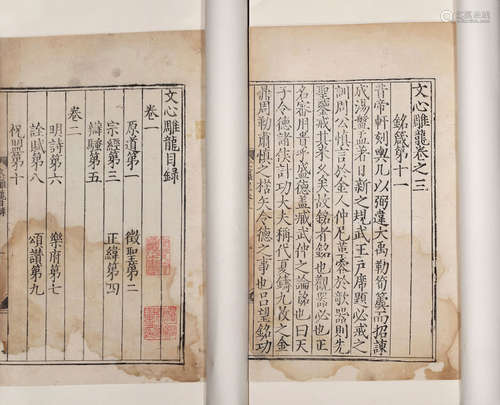 文心雕龍目錄
卷一
原道第一 徵聖第二
宗經第三 正緯第四
辯騷第五
卷二
明詩第六 樂府第七
詮賦第八 頌讚第九
祝盟第十
文心雕龍卷之三
銘箴第十一
昔帝軒刻輿几以弼違大禹勒筍簴而招諫
成湯盤盂著日新之規武王戶席題必戒之
訓周公慎言於金人仲尼革容於欹器則先
聖鑒戒其來久矣故銘者銘也觀器必也正
名審用貴乎盛德蓋臧武仲之論銘也曰天
子令德諸侯計功大夫稱伐夏鑄九牧之金
鼎周勒肅慎之楛矢令德之事也呂望銘功